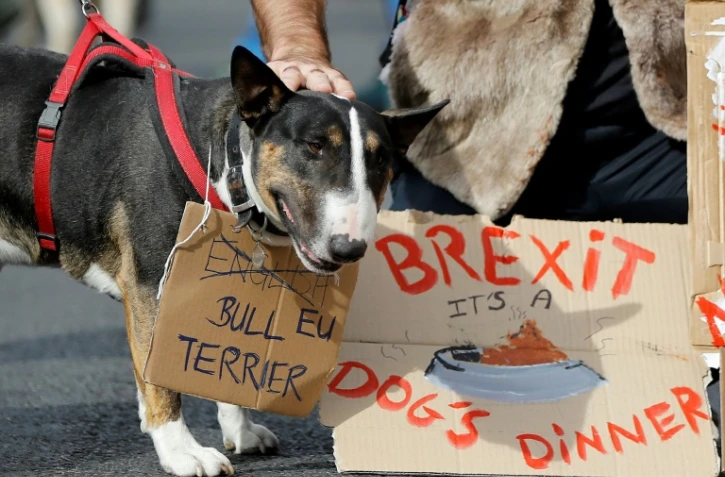 ENGLISH
BULL EU
TERRIER
BREXiT
IT'S A
DOG'S DiNNER